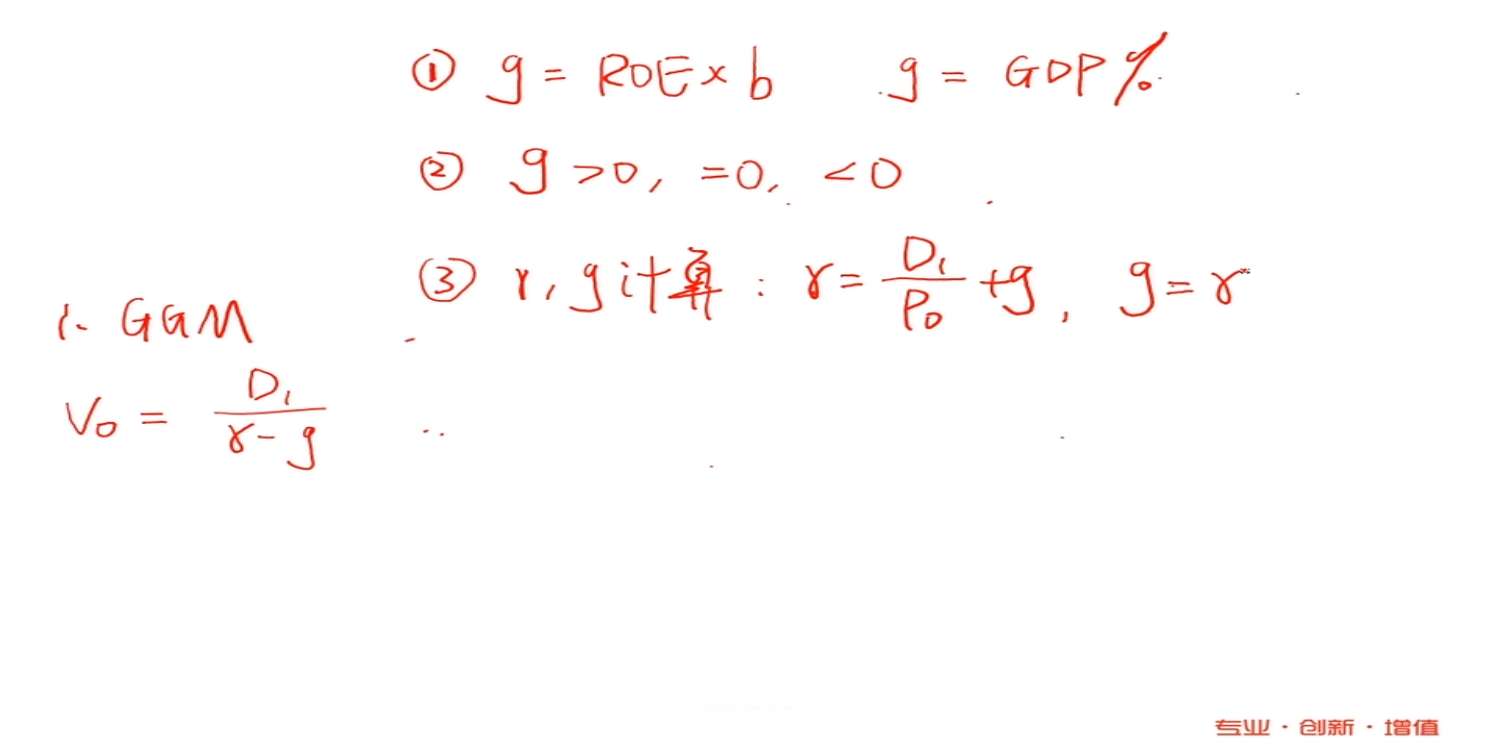 ① g = ROE × b   g = GDP%
② g >0, =0, <0
③ r, g计算: r = D₁/P₀ + g, g = r
1. GGM
V₀ = D₁/(r - g)
专业·创新·增值